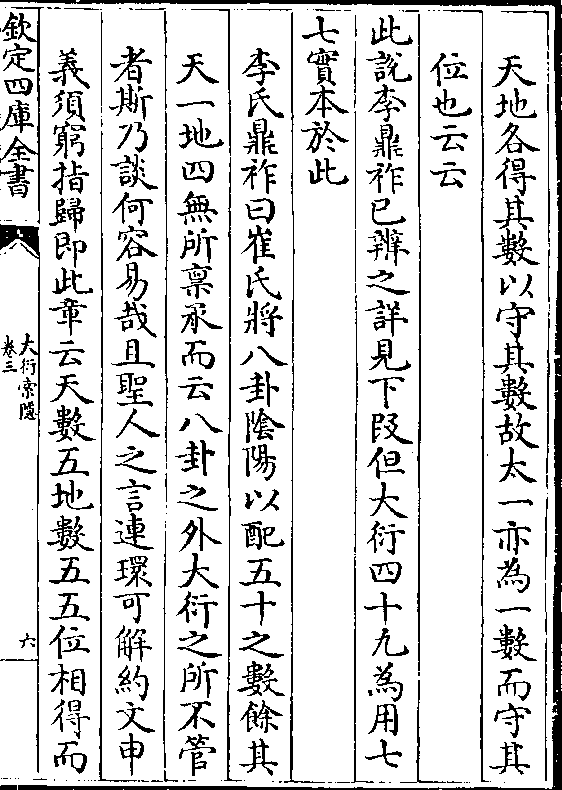 天地各得其數以守其數故太一亦為一數而守其
位也云云
此説李鼎祚已辨之詳見下段但大衍四十九為用七
七實本於此
李氏鼎祚曰崔氏將八卦陰陽以配五十之數餘其
天一地四無所禀承而云八卦之外大衍之所不管
者斯乃談何容易哉且聖人之言連環可解約文申
義須窮指歸即此章云天數五地數五五位相得而
欽定四庫全書
大衍索隱
卷三
六